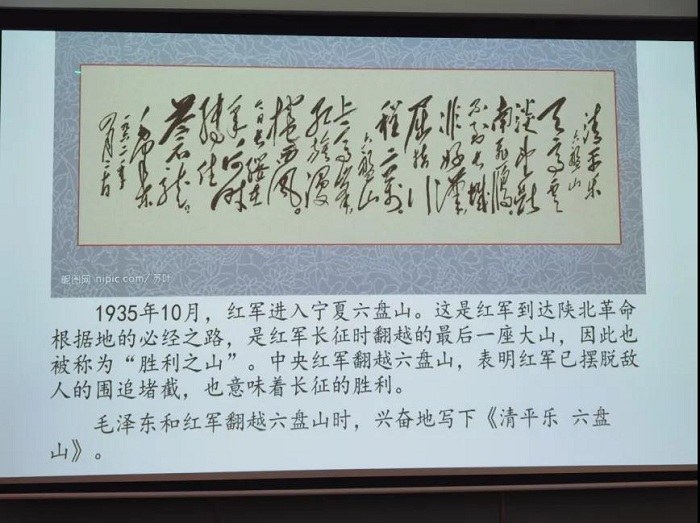 清平乐
六盘山
天高云
淡望断
南飞雁
不到长城
非好汉
屈指行
程二万
六盘山
上高峰
红旗漫
西风
今日长缨在
手何时
缚住
苍龙
毛泽东
昵图网 nipic.com/苏叶
1935年10月，红军进入宁夏六盘山。这是红军到达陕北革命
根据地的必经之路，是红军长征时翻越的最后一座大山，因此也
被称为“胜利之山”。中央红军翻越六盘山，表明红军已摆脱敌
人的围追堵截，也意味着长征的胜利。
毛泽东和红军翻越六盘山时，兴奋地写下《清平乐 六盘
山》。